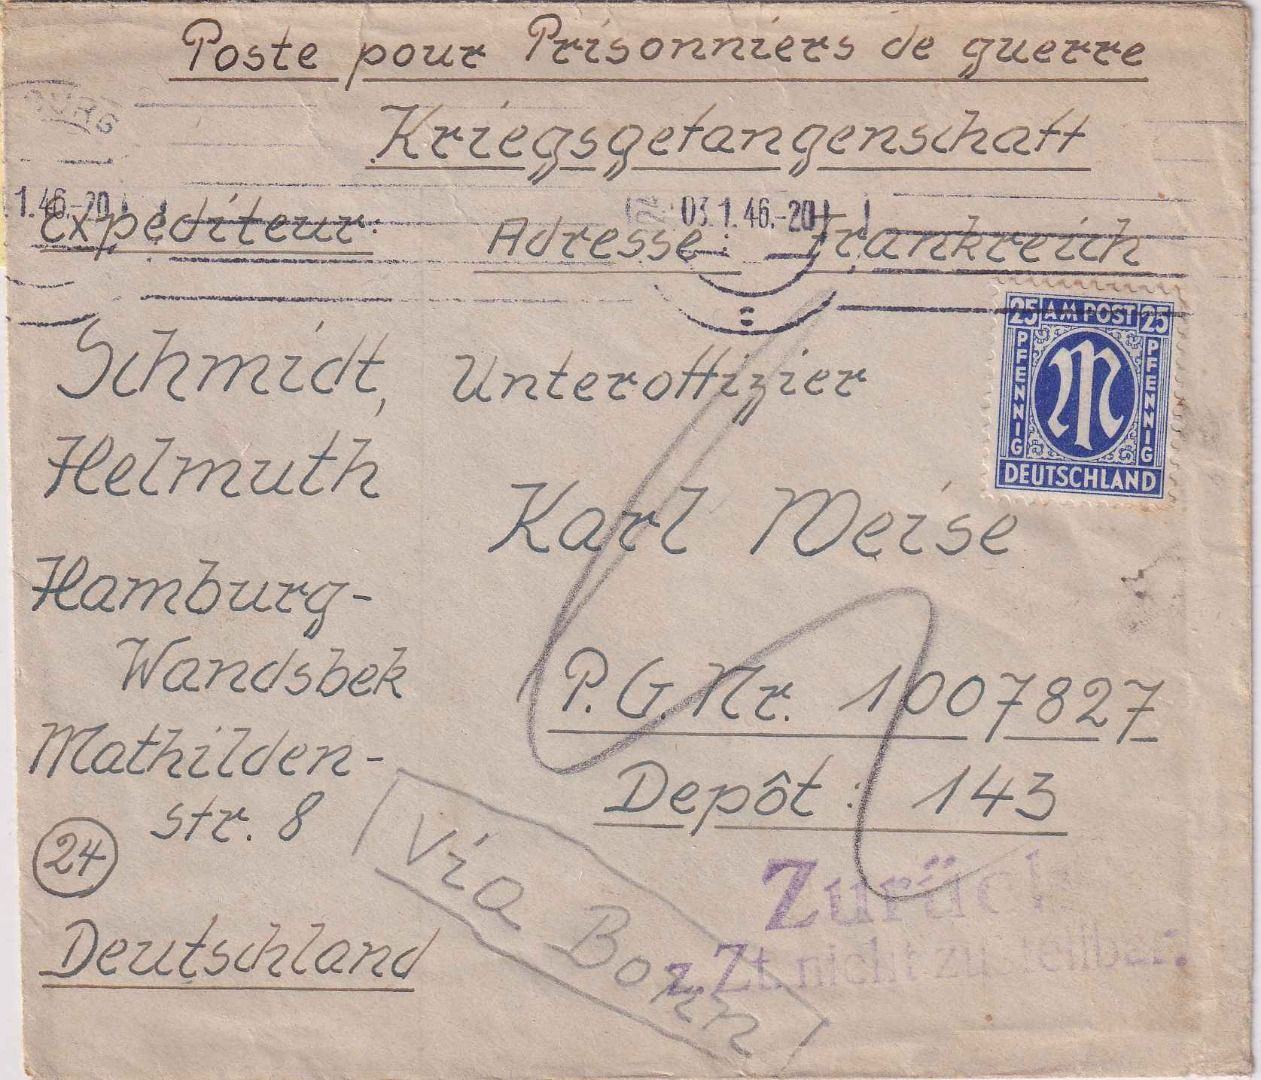 Poste pour Prisonniers de guerre
Kriegsgefangenschaft
1.46.-20
03.1.46.-20
Expéditeur:
Adresse: Frankreich
25 AM POST 25
PFENNIG
PFENNIG
M
DEUTSCHLAND
Schmidt,
Helmuth
Hamburg-
Wandsbek
Mathilden-
str. 8
24
Deutschland
Unteroffizier
Karl Weise
P.G. Nr. 1007827
Depôt: 143
Via Bonn
Zurück
z.Zt. nicht zustellbar.